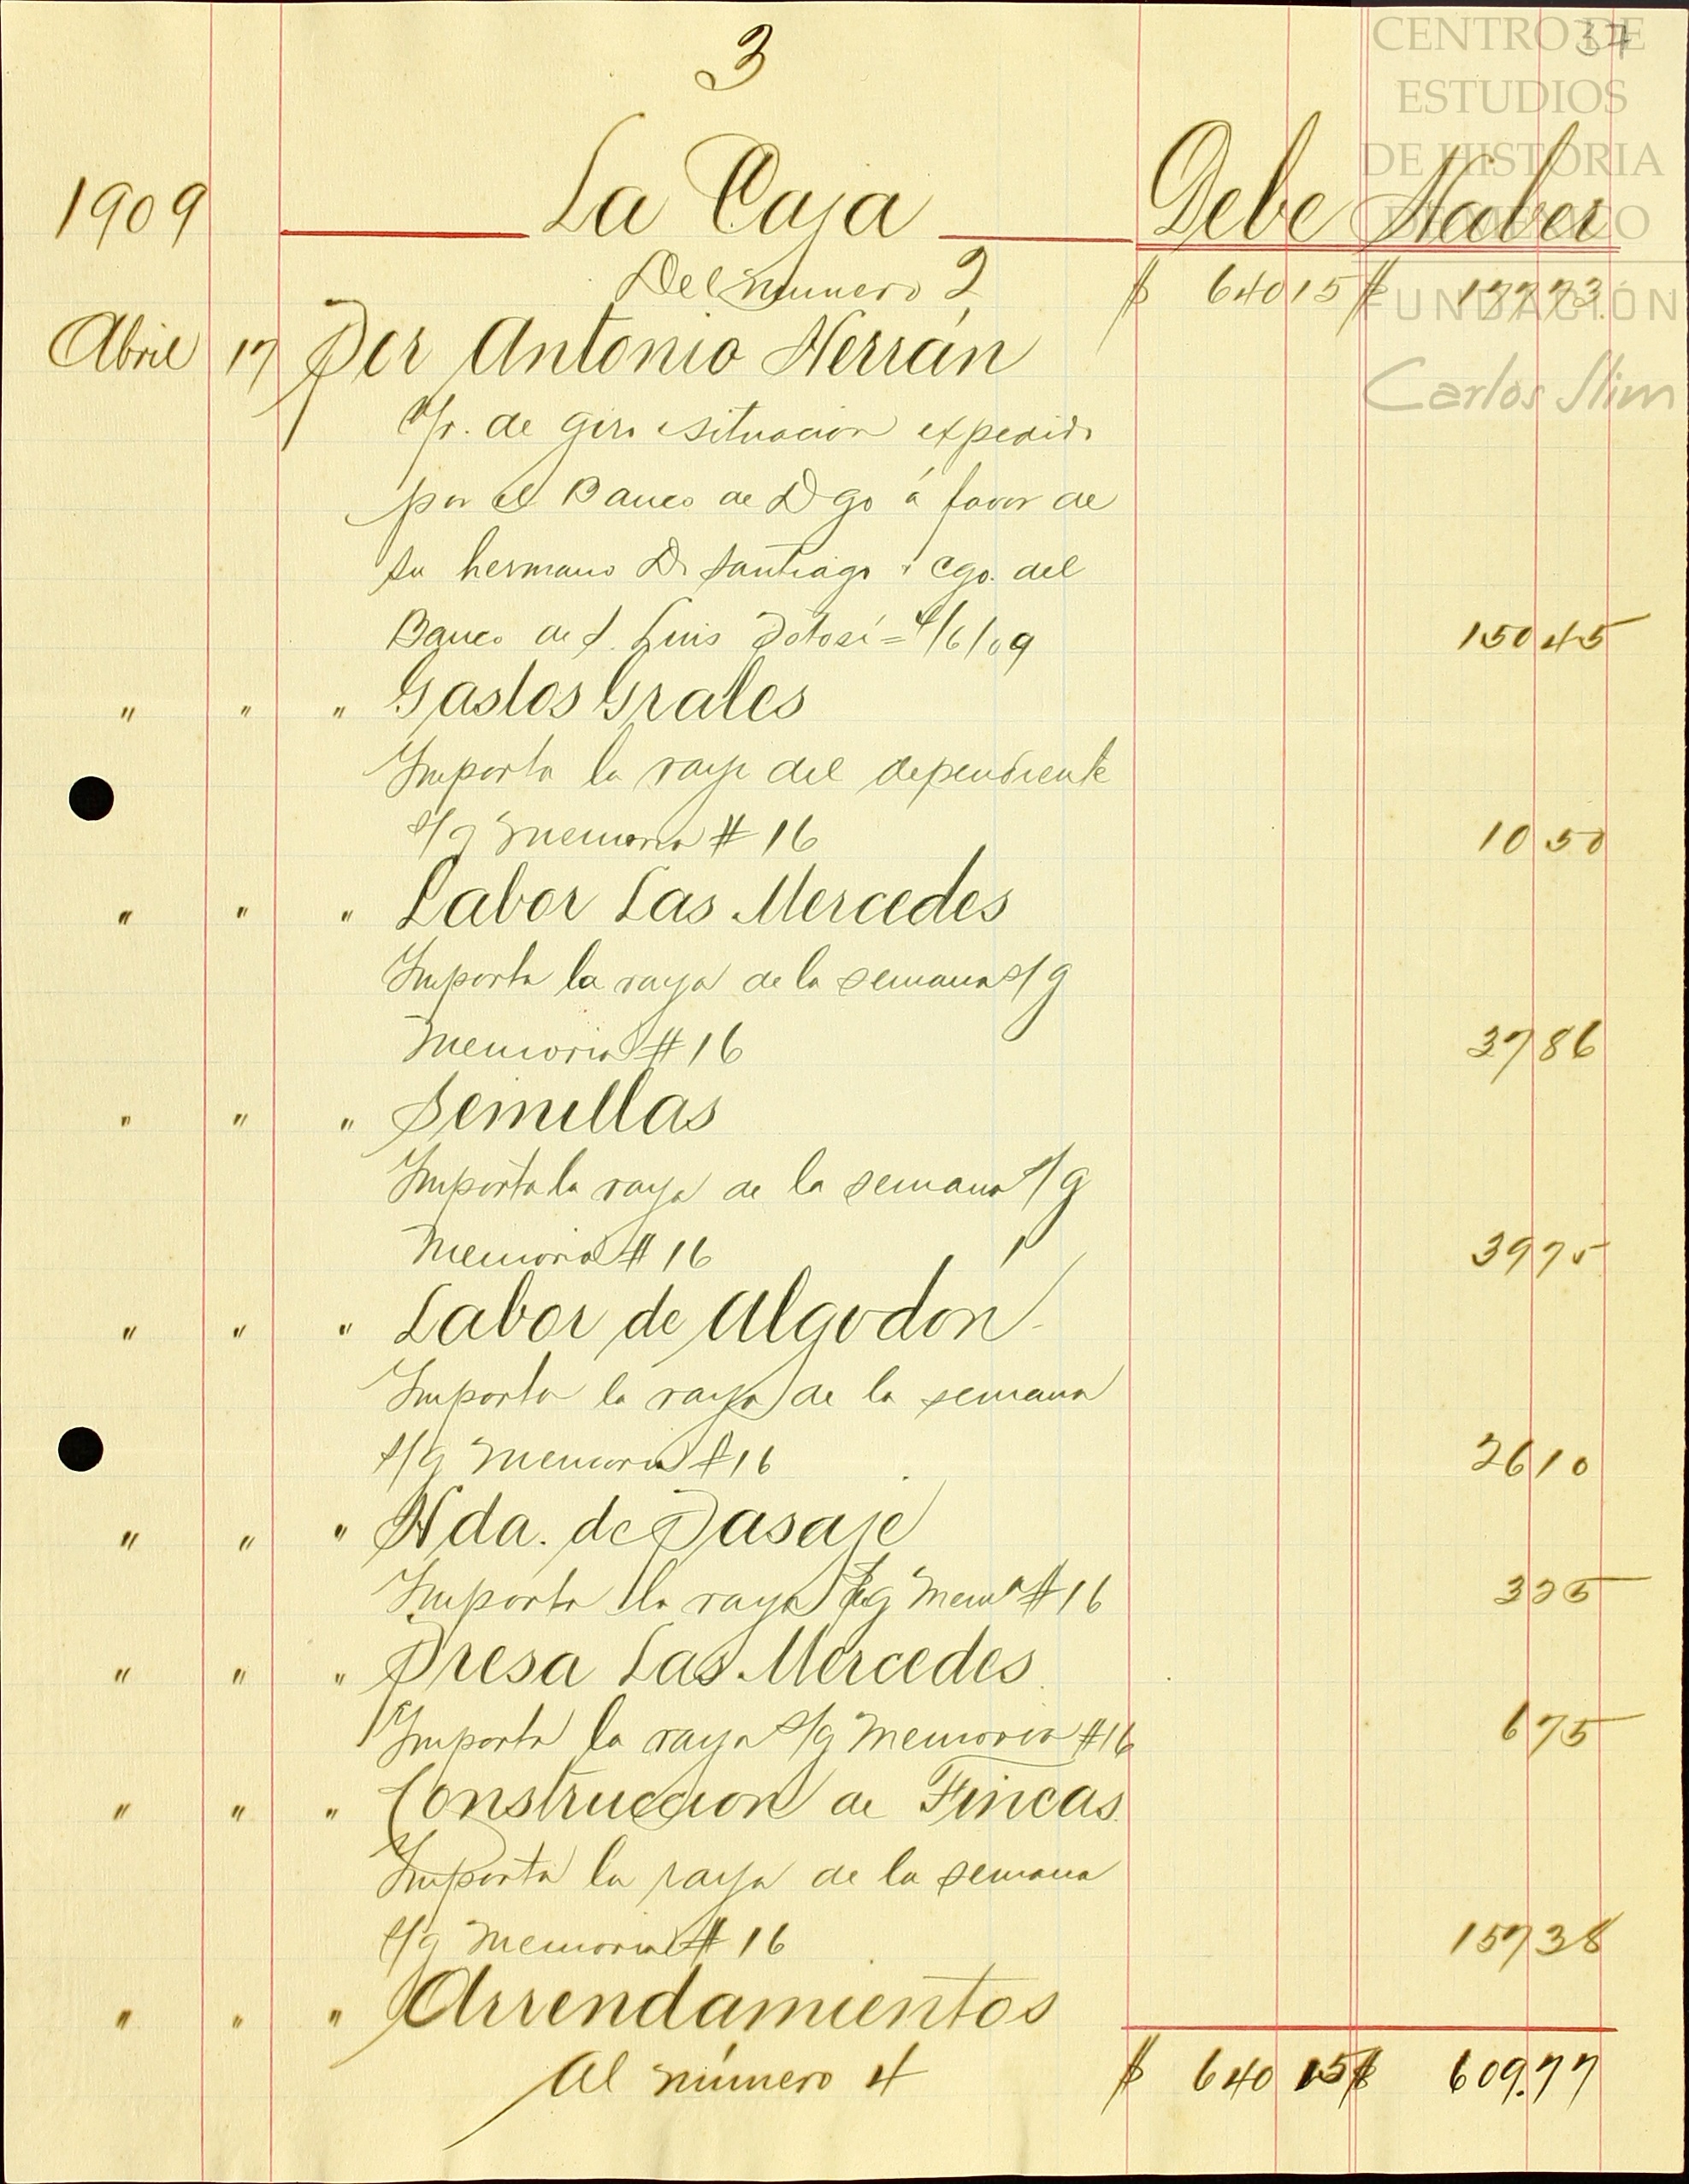 3
37
CENTRO DE
ESTUDIOS
DE HISTORIA
DE MÉXICO
FUNDACIÓN
Carlos Slim
1909 La Caja Debe Haber
Del numero 2 $ 640 15 $ 177 73
Abril 17 Por Antonio Herrán
de giro situacion expedido
por el Banco de Dgo á favor de
su hermano Dn Santiago á cgo. del
Banco de S. Luis Potosí = 4/6/09 150 45
" " " Gastos Grales
Importa la raya del dependiente
s/g Memoria # 16 10 50
" " " Labor Las Mercedes
Importa la raya de la semana s/g
Memoria # 16 37 86
" " " Semillas
Importa la raya de la semana s/g
Memoria # 16 39 75
" " " Labor de Algodón
Importa la raya de la semana
s/g Memoria # 16 26 10
" " " Hda. de Pasaje
Importa la raya s/g Mema # 16 3 25
" " " Presa Las Mercedes
Importa la raya s/g Memoria # 16 6 75
" " " Construccion de Fincas
Importa la raya de la semana
s/g Memoria # 16 157 38
" " " Arrendamientos
Al número 4 $ 640 15 $ 609.77